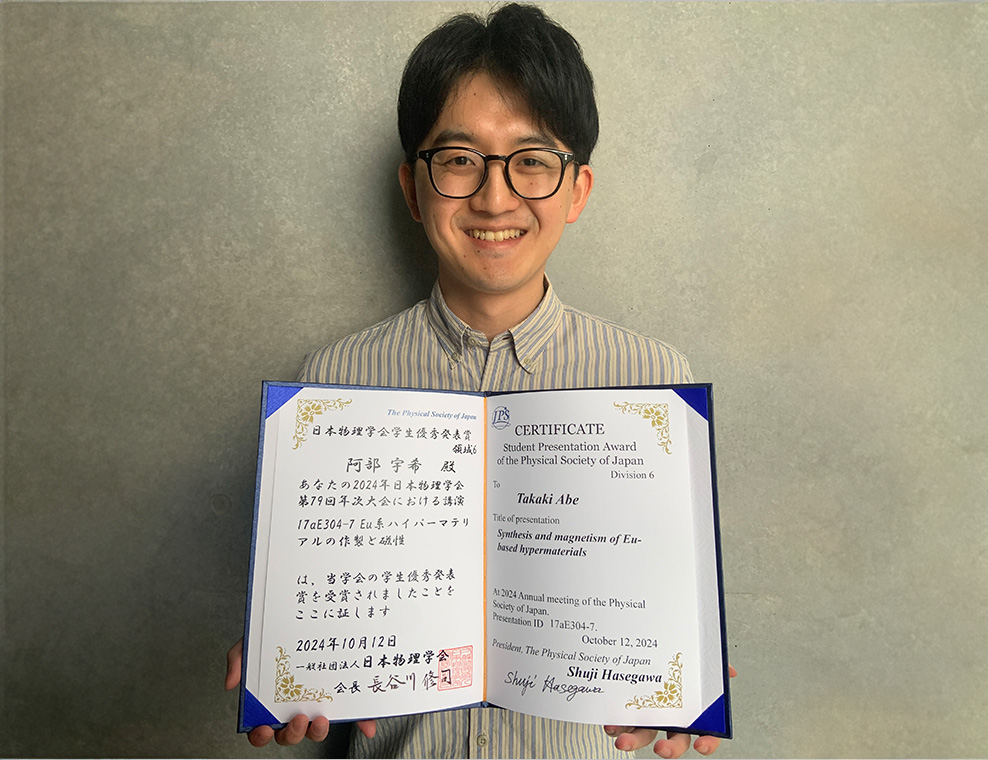 The Physical Society of Japan
日本物理学会学生優秀発表賞
領域6
阿部 宇希 殿
あなたの2024年日本物理学会
第79回年次大会における講演
17aE304-7 Eu系ハイパーマテリ
アルの作製と磁性
は、当学会の学生優秀発表
賞を受賞されましたことを
ここに証します
2024年10月12日
一般社団法人日本物理学会
会長 長谷川 修司
JPS
CERTIFICATE
Student Presentation Award
of the Physical Society of Japan
Division 6
To
Takaki Abe
Title of presentation
Synthesis and magnetism of Eu-
based hypermaterials
At 2024 Annual meeting of the Physical
Society of Japan.
Presentation ID 17aE304-7.
October 12, 2024
President, The Physical Society of Japan
Shuji Hasegawa
Shuji Hasegawa